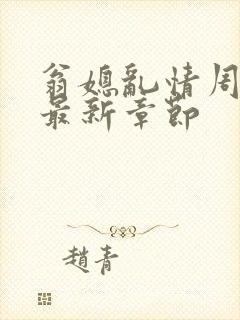 翁媳亂情周
最新章節
趙青